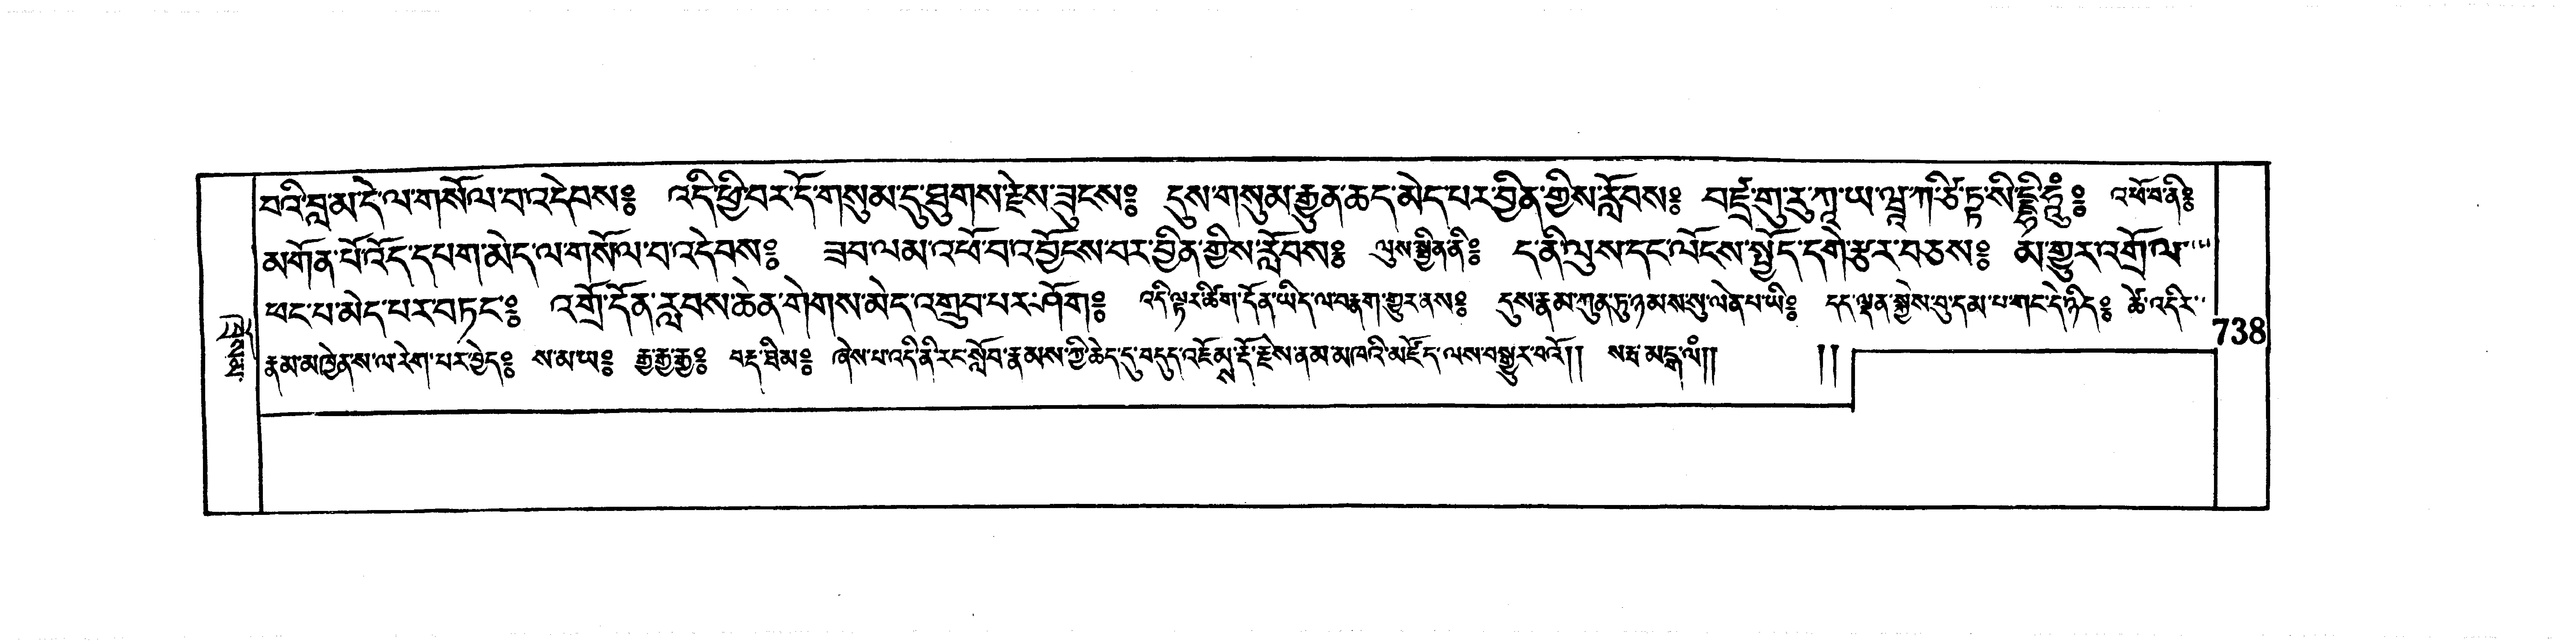 བའི་བླ་མ་དེ་ལ་གསོལ་བ་འདེབས༔ འདི་ཕྱི་བར་དོ་གསུམ་དུ་ཐུགས་རྗེས་ཟུངས༔ དུས་གསུམ་རྒྱུན་ཆད་མེད་པར་བྱིན་གྱིས་རློབས༔ བཛྲ་གུ་རུ་ཀཱ་ཡ་ཝཱཀ་ཙིཏྟ་སིདྡྷི་ཧཱུྃ༔ འཕོ་བ་ནི༔
མགོན་པོ་འོད་དཔག་མེད་ལ་གསོལ་བ་འདེབས༔ ཟབ་ལམ་འཕོ་བ་འབྱོངས་བར་བྱིན་གྱིས་རློབས༔ ལུས་སྦྱིན་ནི༔ ད་ནི་ལུས་དང་ལོངས་སྤྱོད་དགེ་རྩར་བཅས༔ མ་གྱུར་འགྲོ་ལ་
ཕང་པ་མེད་པར་བཏང་༔ འགྲོ་དོན་རླབས་ཆེན་གེགས་མེད་འགྲུབ་པར་ཤོག༔ འདི་ལྟར་ཚིག་དོན་ཡིད་ལ་བརྣག་གྱུར་ནས༔ དུས་རྣམ་ཀུན་ཏུ་ཉམས་སུ་ལེན་པ་ཡི༔ དད་ལྡན་སྐྱེས་བུ་དམ་པ་གང་དེ་ཉིད༔ ཚེ་འདིར་
རྣམ་མཁྱེནས་ལ་རེག་པར་བྱེད༔ ས་མ་ཡ༔ རྒྱ་རྒྱ་རྒྱ༔ བརྡ་ཐིམ༔ ཞེས་པ་འདི་ནི་རང་སློབ་རྣམས་ཀྱི་ཆེད་དུ་བདུད་འཇོམས་རྡོ་རྗེས་ནམ་མཁའི་མཛོད་ལས་བསྒྱུར་བའོ།། སརྦ་མངྒ་ལཾ།། །།
738